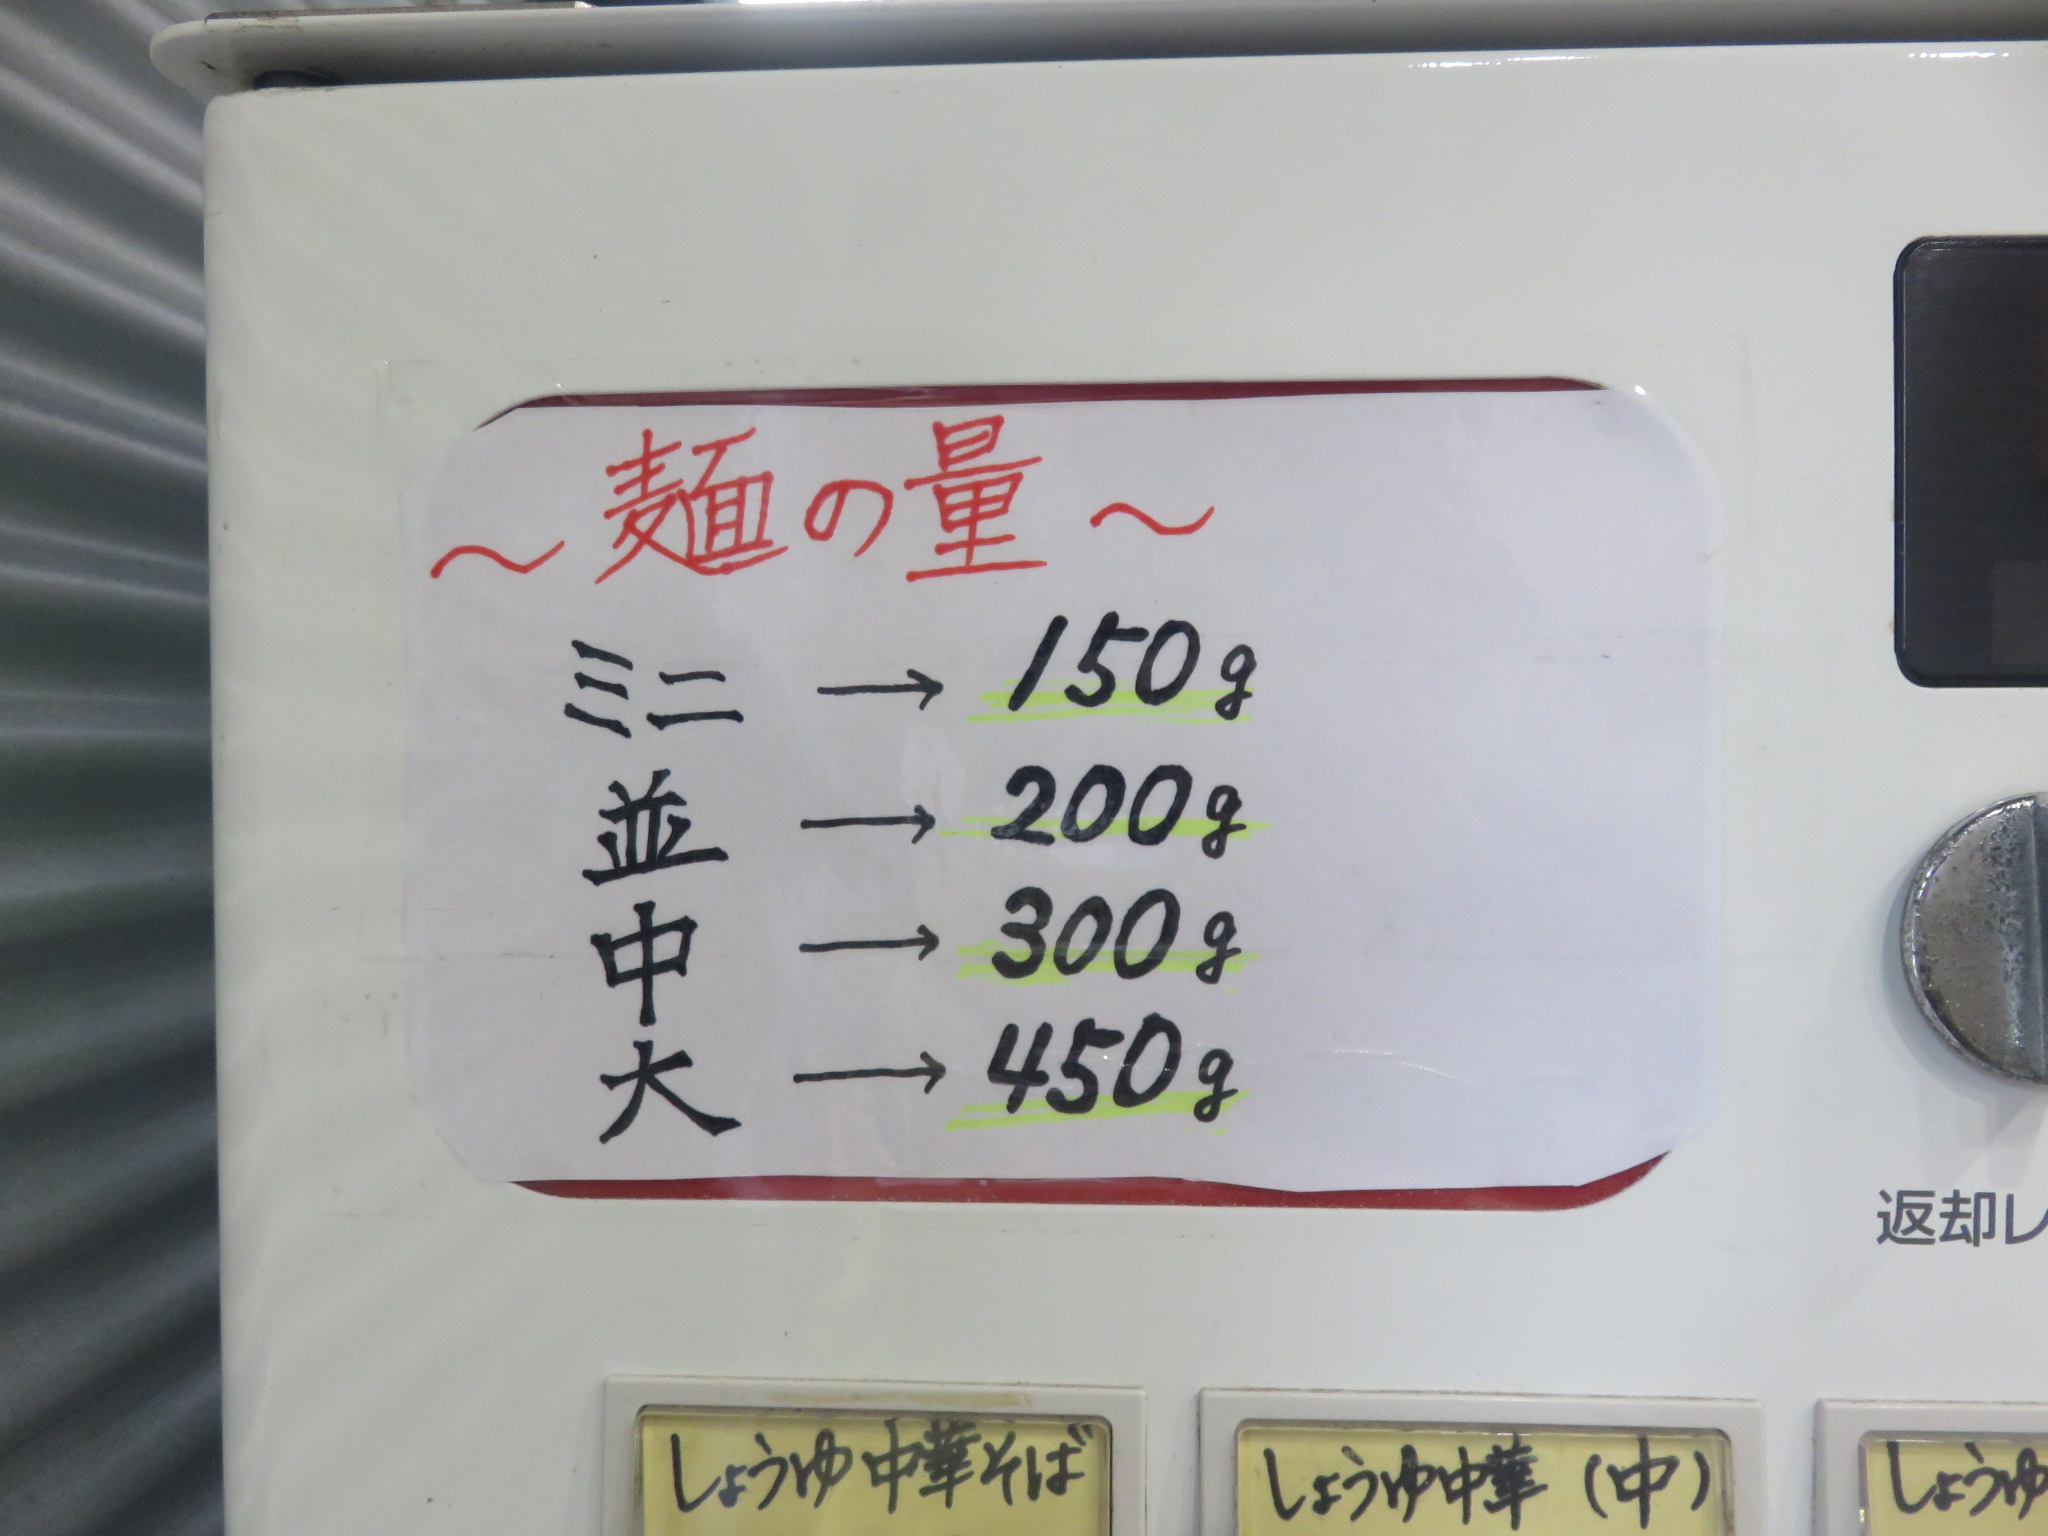 ～麺の量～
ミニ → 150g
並 → 200g
中 → 300g
大 → 450g
返却レ
しょうゆ中華そば
しょうゆ中華（中）
しょうゆ